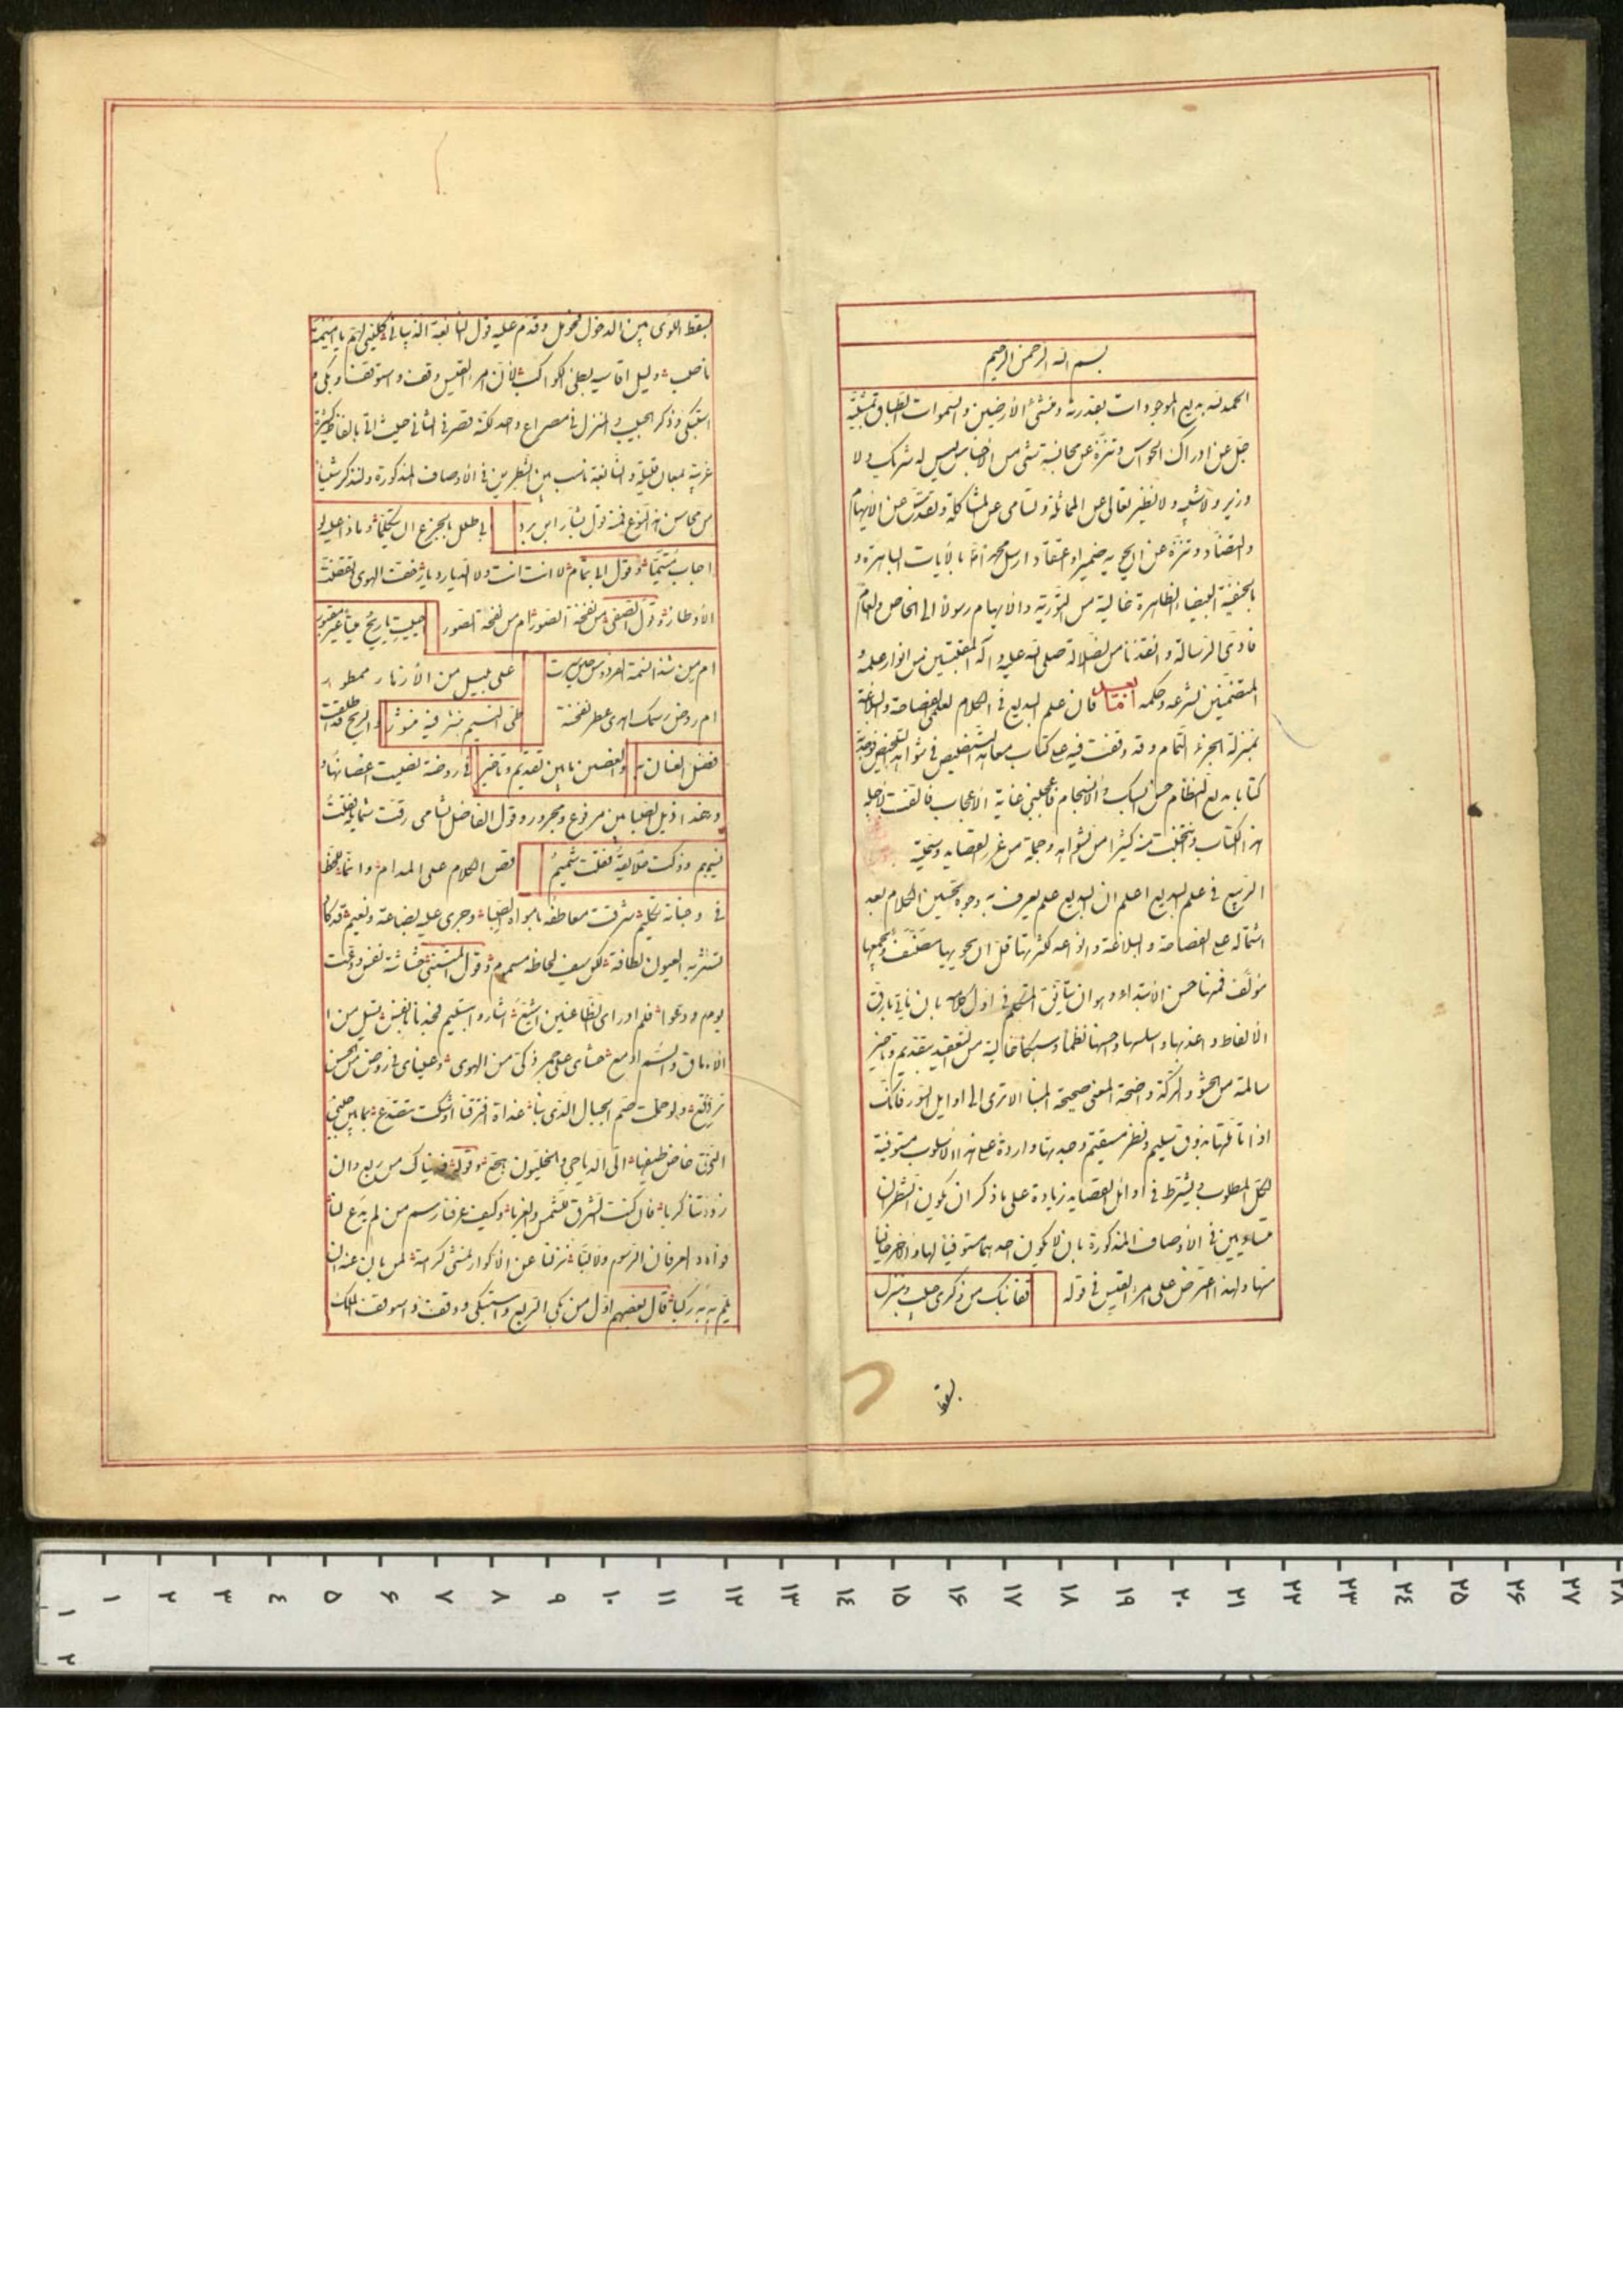 بسم الله الرحمن الرحیم
الحمد لله بدیع الموجودات بقدرته ومنشئ الأرضین والسموات الطباق بمشیّته
جلّ عن ادراک الحواس وتنزّه عن مجانسة شئ من الأجناس لیس له شریک ولا
وزیر ولا شبیه ولا نظیر تعالی عن المماثلة وتسامی عن المشاکلة وتقدّس عن الابهام
والتضاد وتنزّه عن ضمیر او اعتقاد ارسل محمدا بالآیات الباهرة و
بالحنفیة البیضاء الظاهرة خالیة من التوریة والابهام رسولا الی الخاص والعام
فادّی الرسالة وانقذنا من الضلالة صلی الله علیه وآله المقتبسین من انوار علمه و
المتضمّنین لشرعه وحکمه امّا بعد فان علم البدیع فی الکلام لعلمی الفصاحة والبلاغة
بمنزلة الجزء التمام وقد وقفت فیه علی کتاب معاهد التنصیص فی شواهد التلخیص فوجدته
کتابا بدیع النظام حسن السبک والانسجام فاعجبنی غایة الاعجاب فالفت لاجله
هذا الکتاب وانتخبت منه کثیرا من شواهده وجملة من غرر القصاید وسمّیته
الربیع فی علم البدیع اعلم ان البدیع علم یعرف به وجوه تحسین الکلام بعد
اشتماله علی الفصاحة والبلاغة وانواعه لکثرتها قلّ ان یحویها مصنّف ویجمعها
مؤلّف فمنها حسن الابتداء وهو ان یتأنّق المتکلم فی اوّل کلامه بان یاتی بارقّ
الالفاظ واعذبها واسلسها واحسنها نظما وسبکا خالیة من التعقید بتقدیم وتاخیر
سالمة من الحشو والرکّة واضحة المعنی صحیحة المبنا الا تری الی اوایل السور فانک
اذا تاملتها بذوق سلیم ونظر مستقیم وجدتها واردة علی هذا الاسلوب مستوفیة
لکل المطلوب ویشترط فی اوائل القصاید زیادة علی ما ذکر ان یکون الشطران
متساویین فی الاوصاف المذکورة بان لا یکون احدهما مستوفیا لها والآخر خالیا
منها ولهذا اعترض علی امرء القیس فی قوله قفا نبک من ذکری حبیب ومنزل
بسقط
بسقط اللوی بین الدخول فحومل وقدّم علیه قول النابغة الذبیانی کلینی لهمّ یا امیمة
ناصب ولیل اقاسیه بطئ الکواکب لأن امرء القیس وقف واستوقف وبکی و
استبکی وذکر الحبیب والمنزل فی مصراع واحد لکنه قصر فی الثانی حیث اتی بالفاظ کثیرة
غریبة لمعان قلیلة والنابغة ناسب بین الشطرین فی الاوصاف المذکورة ولنذکر شیئا
من محاسن هذا النوع فمنه قول بشار ابن برد ابی طلل بالجزع ان یتکلما وماذا علیه لو
اجاب متیّما وقول ابی تمام لا انت انت ولا الدیار دیار خفت الهوی وتقضّت
الاوطار وقول الصفی من نفخة الصور ام من نفحة الصور احییت یا ریح میتا غیر مقبور
ام من شذا نسمة الفردوس حین سرت علی بلیل من الأزهار ممطور
ام روض رسمک اهدی عطر نفحته طیّ النسیم بنشر فیه منشور والریح قد اطلقت
فضل العنان به والغصن ما بین تقدیم وتاخیر فی روضة نصبت اغصانها و
وغدا ذیل الصبا بین مرفوع ومجرور وقول الفاضل الشامی رقت شمایله فقلت
نسیم وزکت خلایقه فقلت شمیم قصر الکلام علی المدام وانما لحظ
فی وجناته تکلیم شرقت معاطفه بامواه الصبا وجری علیه بضاعة ونعیم قد کاد
تشربه العیون لطافة لکن سیف لحاظه مسموم وقول المتنبی حشاشة نفس ودّعت
یوم ودّعوا فلم ادر ای الظاعنین اشیّع اشاروا بتسلیم فجدنا بانفس تسیل من ا
الآماق والسم ادمع حشای علی جمر ذکیّ من الهوی وعینای فی روض من الحسن
ترتع ولو حملت صمّ الجبال الذی بنا غداة افترقنا اوشکت تتصدّع بما بین جنبیّ
التی خاض طیفها الیّ الدیاجی والخلیّون هجّع وقوله فدیناک من ربع وان
زدتنا کربا فانک کنت الشرق للشمس والغربا وکیف عرفنا رسم من لم یدع لنا
فوادا لعرفان الرسوم ولا لبّا نزلنا عن الاکوار نمشی کرامة لمن بان عنه ان
یلمّ به رکبا قال بعضهم اوّل من بکی الربع واستبکی ووقف واستوقف الملک